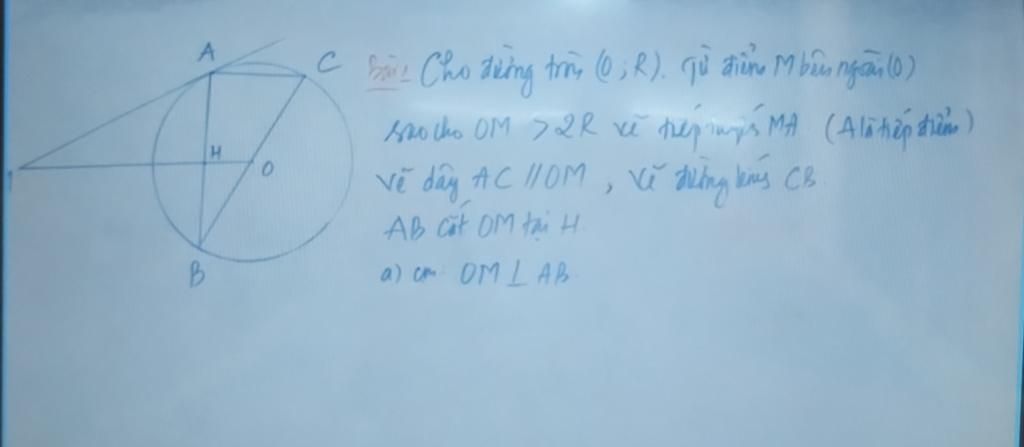 A
C
H
O
B
Bài 1 Cho đường tròn (O; R). Từ điểm M bên ngoài (O)
sao cho OM > 2R vẽ tiếp tuyến MA (A là tiếp điểm)
Vẽ dây AC // OM, vẽ đường kính CB
AB cắt OM tại H
a) cm OM ⊥ AB